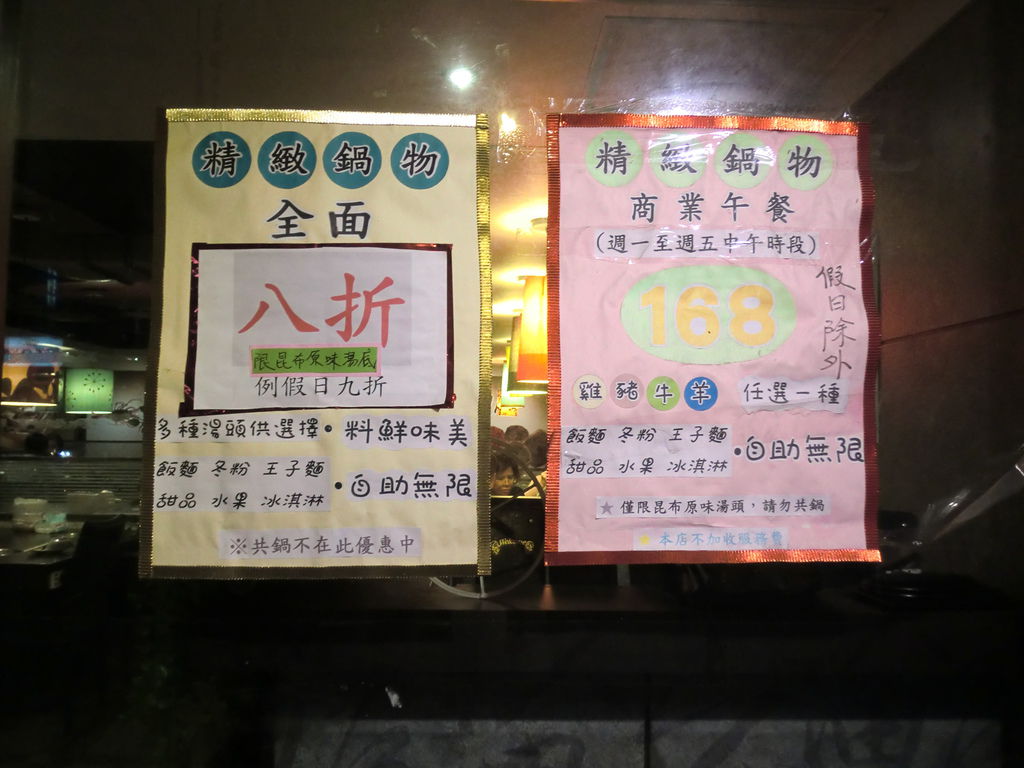 精緻鍋物
全面
八折
限昆布原味湯底
例假日九折
多種湯頭供選擇・料鮮味美
飯麵 冬粉 王子麵
甜品 水果 冰淇淋
・自助無限
※共鍋不在此優惠中
精緻鍋物
商業午餐
(週一至週五中午時段)
168
假日除外
雞豬牛羊 任選一種
飯麵 冬粉 王子麵
甜品 水果 冰淇淋
・自助無限
★僅限昆布原味湯頭，請勿共鍋
★本店不加收服務費